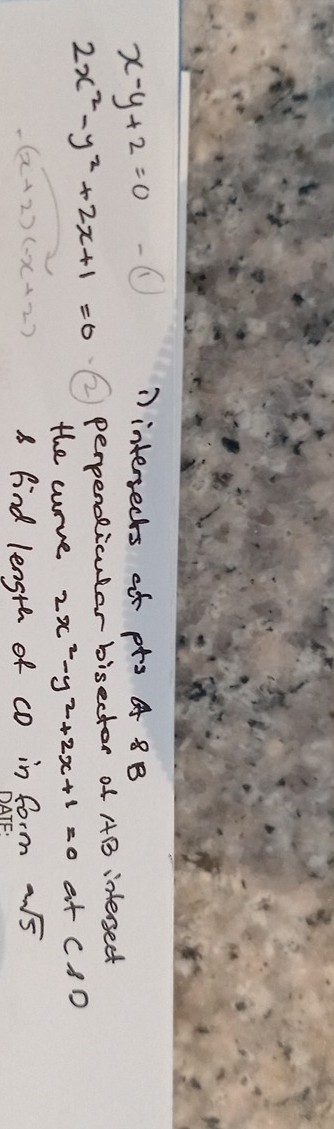 x-y+2=0 - ①
2x²-y²+2x+1=0 - ②
-(x+2)(x+2)
i) intersects at pts A & B
perpendicular bisector of AB intersect
the curve 2x²-y²+2x+1=0 at C & D
& find length of CD in form a√5
DATE: